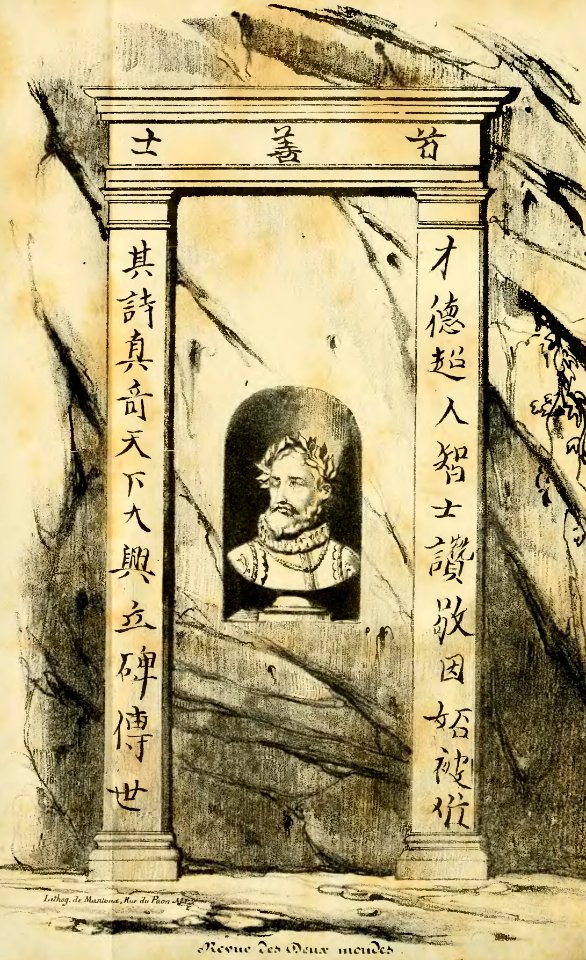 首善士
才德超人智士讚敬因妬被
其詩真奇天下大興立碑傳世
Lithog. de Mantoux, Rue du Paon
Revue des Deux mondes.